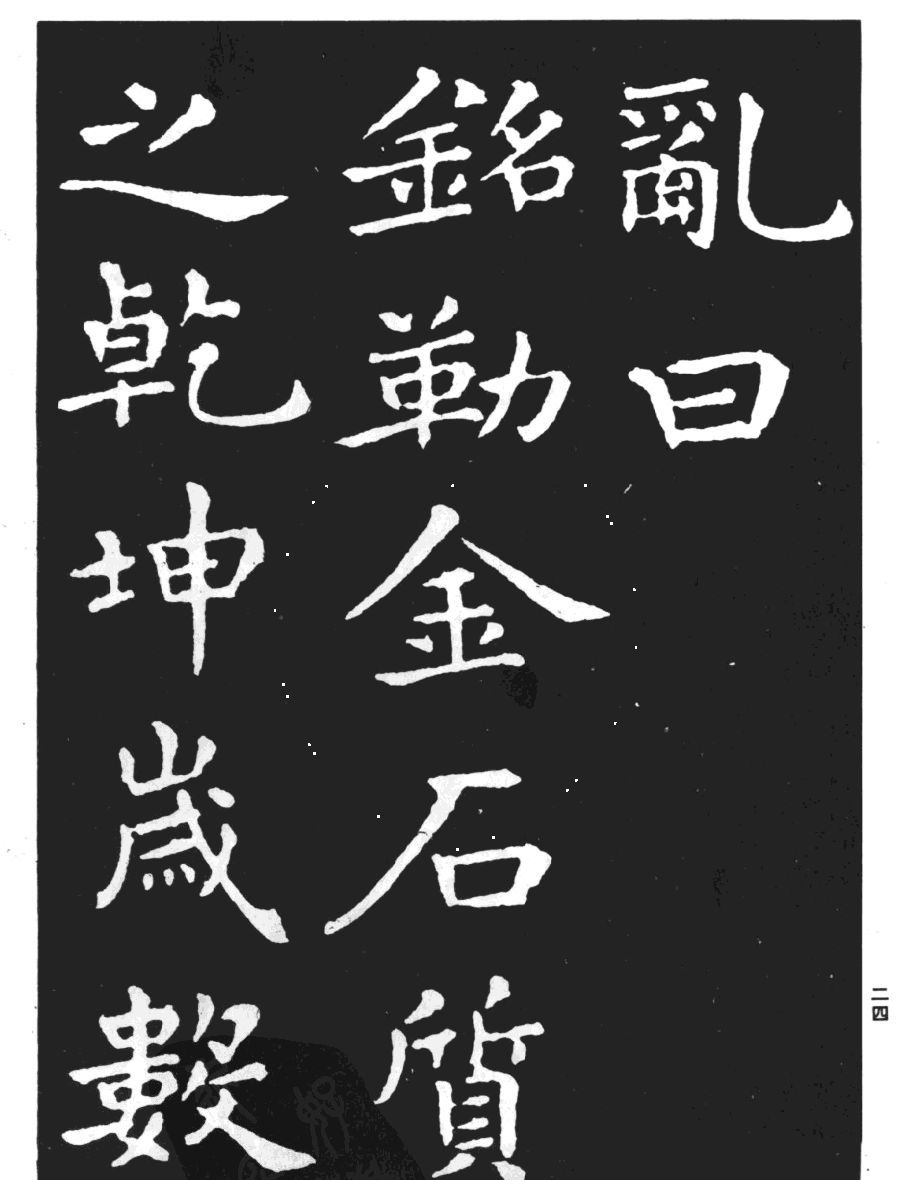 亂曰
銘勒金石質
之乾坤歲數
二四